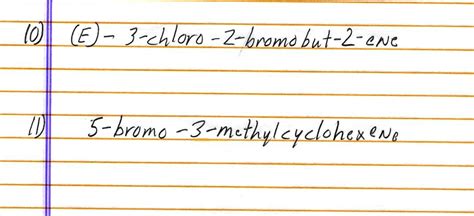 10) (E)-3-chloro-2-bromobut-2-ene
11) 5-bromo-3-methylcyclohexene